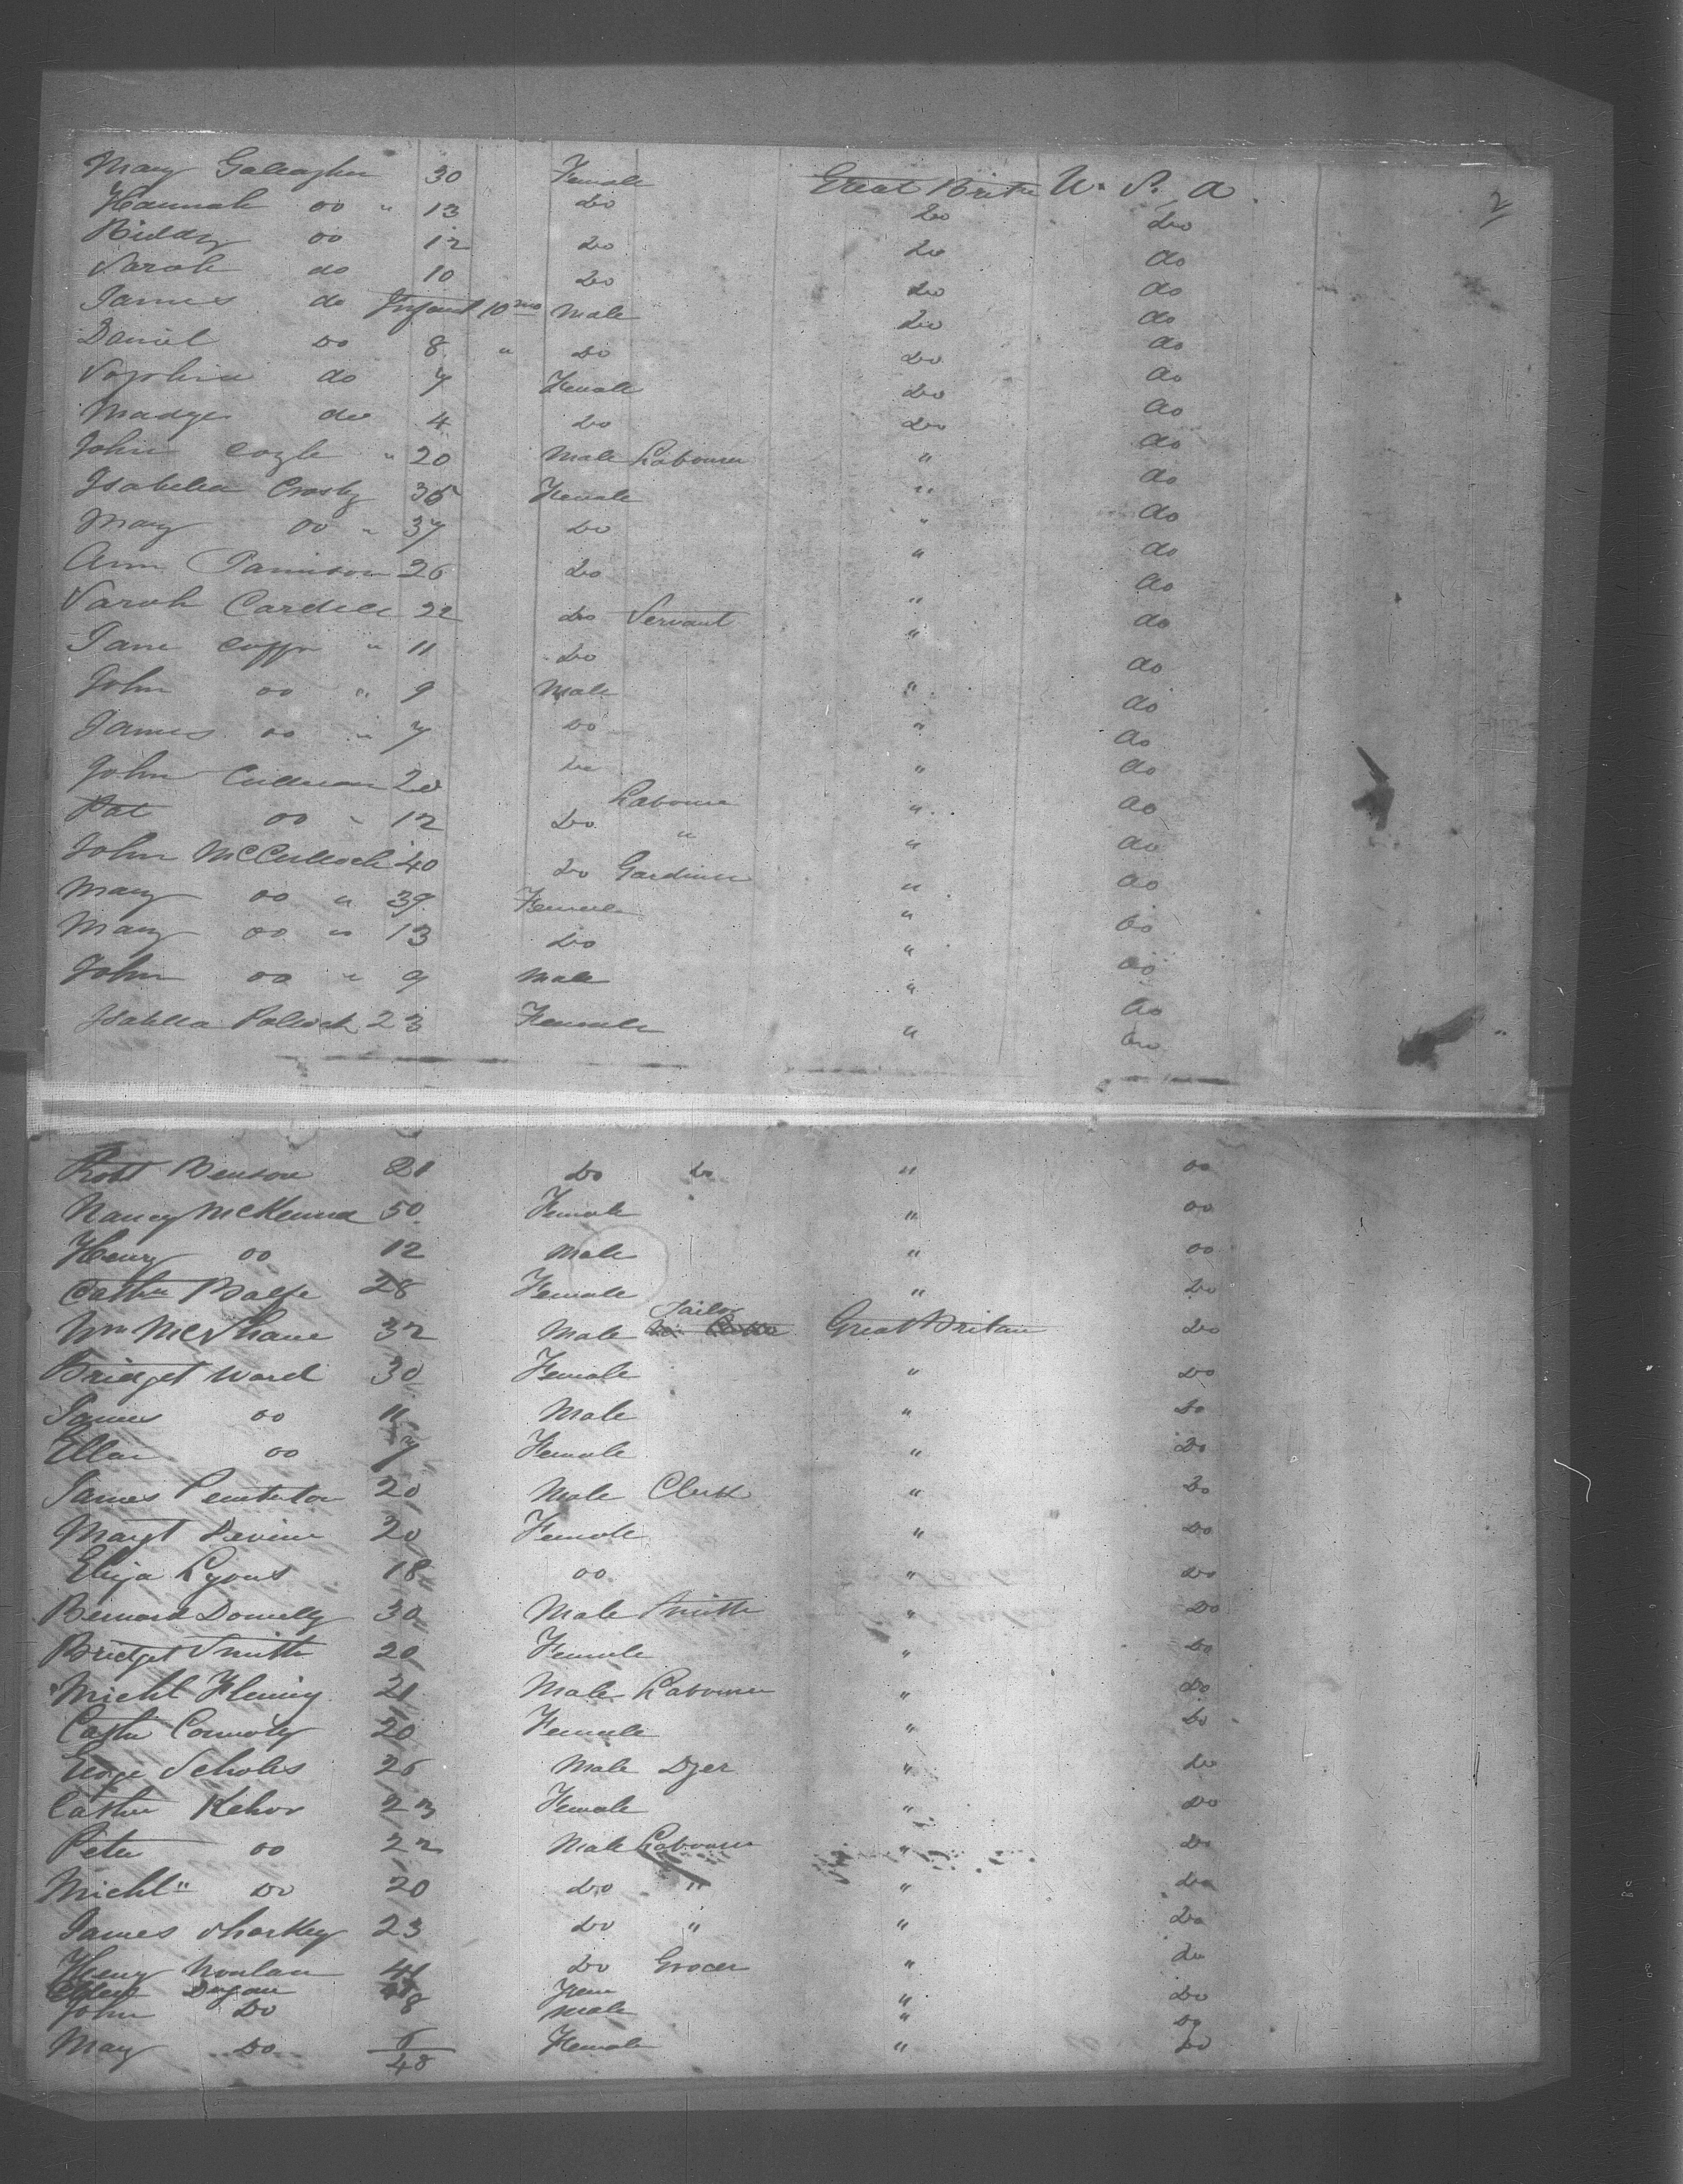 Mary Gallagher 30 Female Great Britn U. S. A 2
Hannah do " 13 Do Do Do
Biddy do 12 Do Do do
Sarah do 10 Do Do do
James do Infant 10 mo Male Do do
Daniel Do 8 " Do Do do
Sophia do 7 Female Do do
Madge do 4 Do Do do
John Coyle " 20 Male Labourer " do
Isabella Crosby 35 Female " do
Mary Do " 37 Do " do
Ann Jamison 26 Do " do
Sarah 22 Do Servant " do
Jane " 11 Do " do
John do " 9 Male " do
James do " 7 Do " do
John 20 Do Labourer " do
Pat do " 12 Do " " do
John McCulloch 40 Do Gardiner " do
Mary do " 39 Female " do
Mary do " 13 Do " do
John do " 9 Male " do
Isabella Pollock 23 Female " do
Robt Benson 21 Do Do " do
Nancy McKenna 50 Female " do
Henry do 12 Male " do
Cathe Balfe 28 Female " Do
Wm McShane 32 Male Tailor Great Britain Do
Bridget Ward 30 Female " Do
James do 11 Male " Do
Ellen do 7 Female " Do
James Pemberton 20 Male Clerk " Do
Margt Devine 20 Female " Do
Eliza Lyons 18 do " Do
Bernard Donnelly 30 Male Smith " Do
Bridget Smith 20 Female " Do
Michl Fleming 21 Male Labourer " Do
Cathe Connolly 20 Female " Do
George Scholes 26 Male Dyer " Do
Cathe Kehor 23 Female " Do
Peter do 22 Male Labourer " Do
Michl " Do 20 Do " " Do
James Sharkey 23 Do " " Do
Henry Nonlan 41 Do Grocer " Do
Dugan Fem " Do
John Do 8 Male " Do
Mary Do 6 Female " Do
48